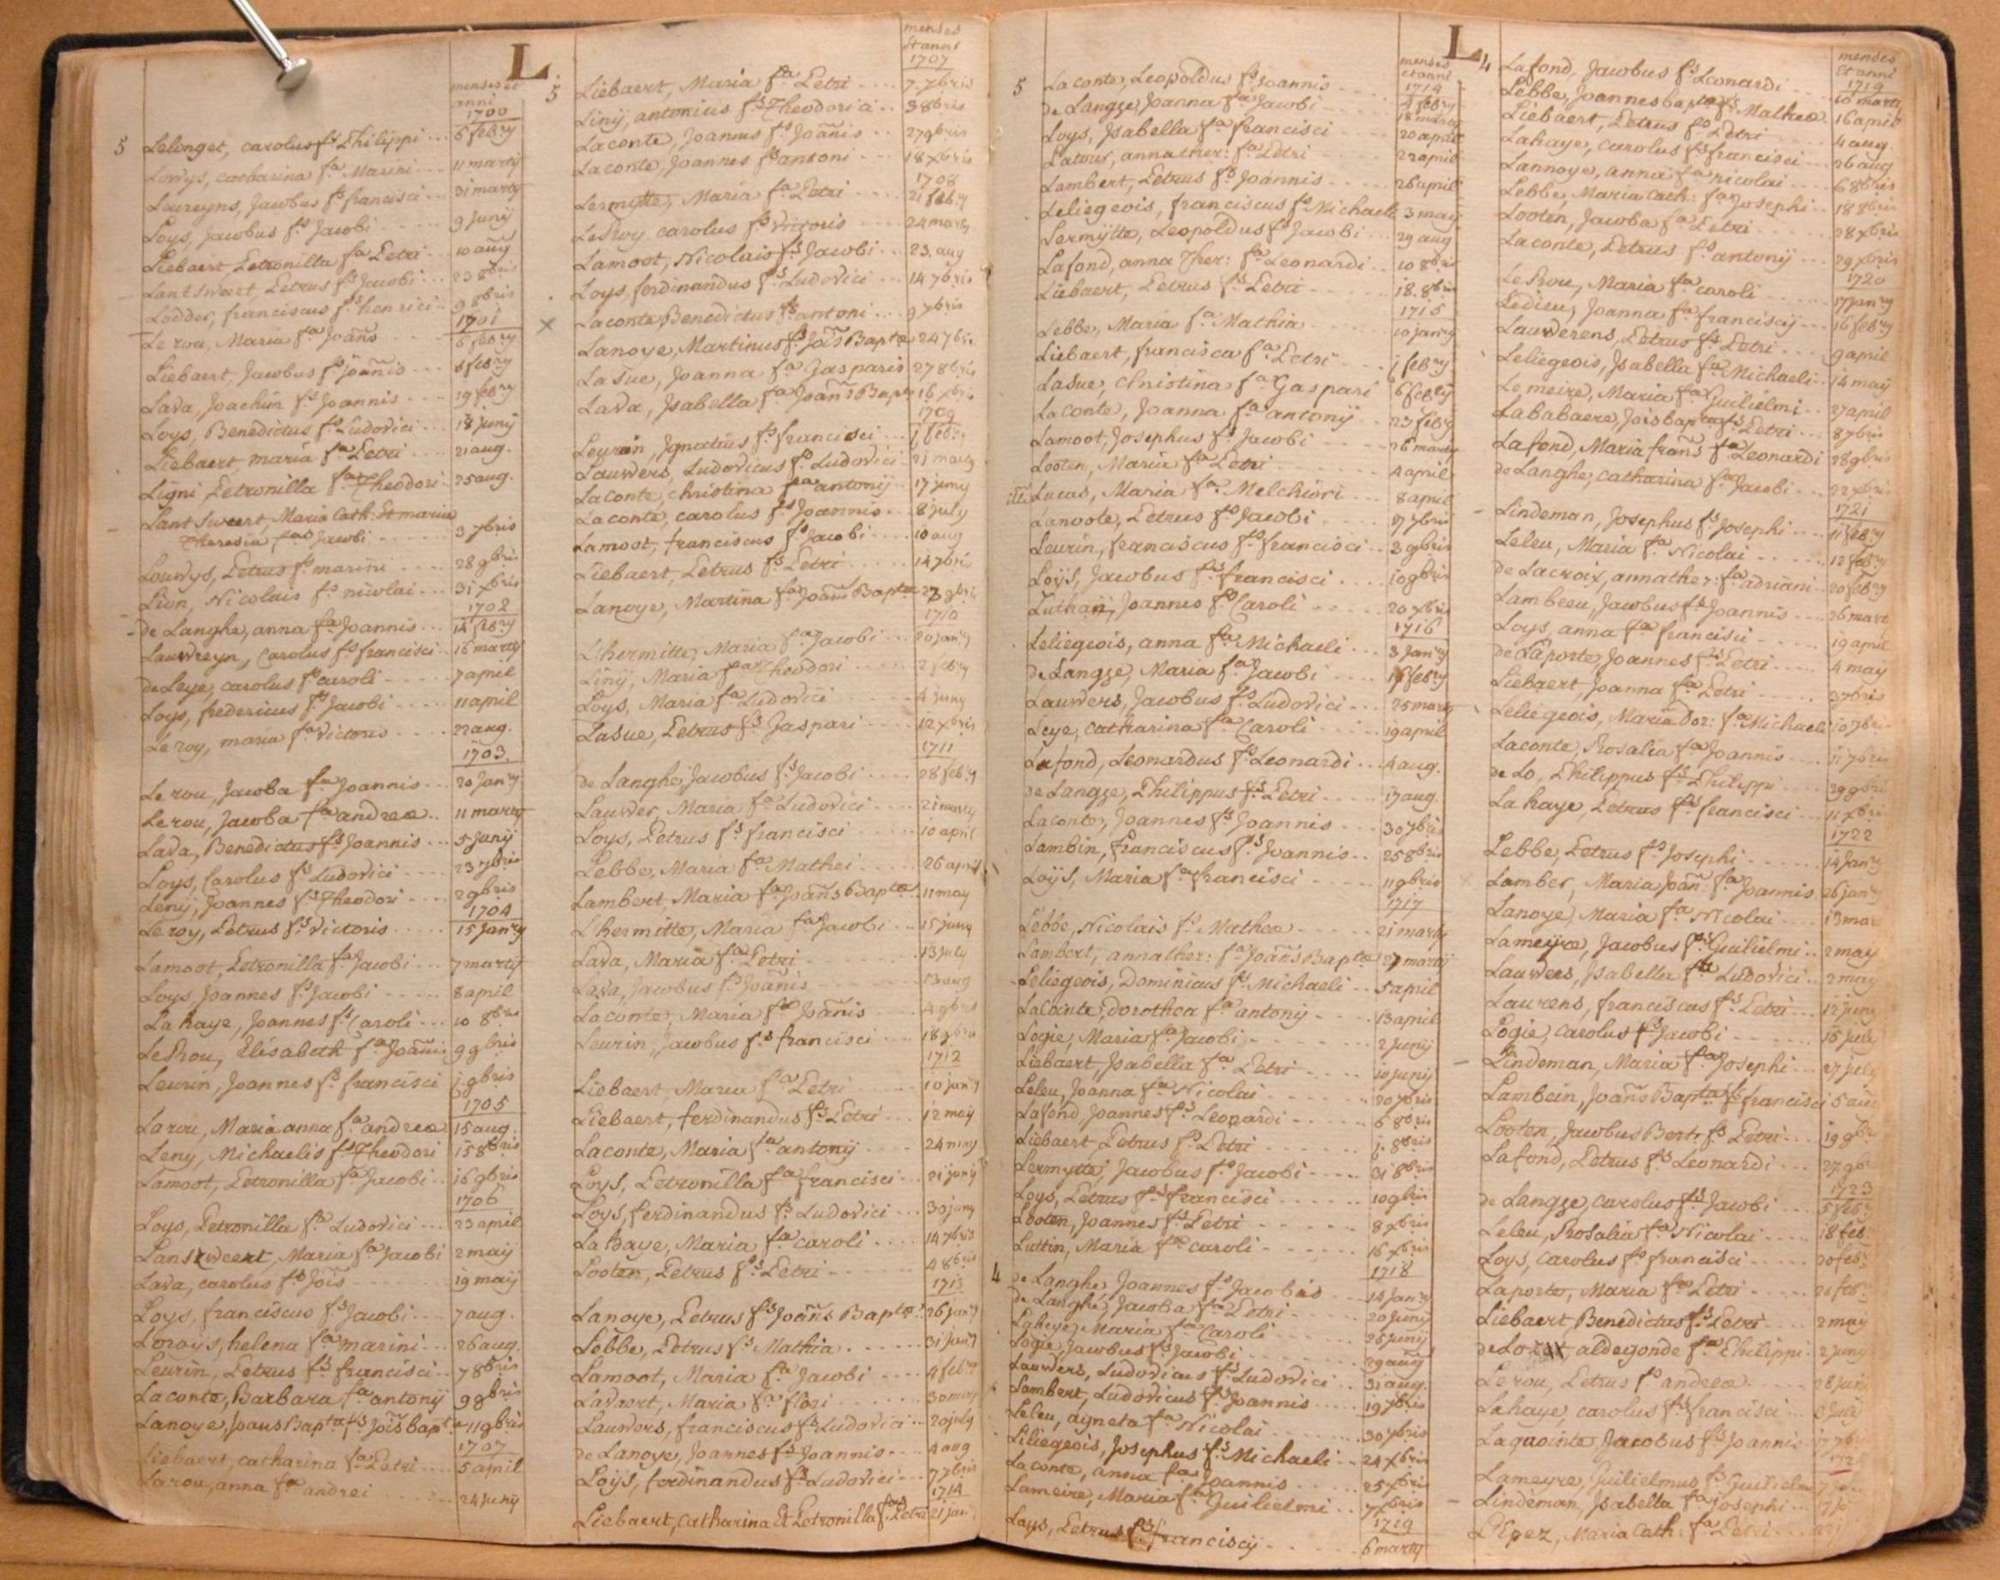 L
menses et
anni
1700
5 Lelonget, carolus fs Philippi 6 feb:ry
Lowys, catharina fa Marini 11 martij
Laureyns, Jacobus fs francisci 31 martij
Loys, Jacobus fs Jacobi 9 Junij
Liebaert Petronilla fa Petri 10 aug
Lantsweert, Petrus fs Jacobi 23 8bris
Lodder, franciscus fs henrici 9 8bris
1701
Le rou, Maria fa Joañs 6 feb:ry
Liebaert, Jacobus fs Joañis 6 feb:ry
Lava, Joachim fs Joannis 19 feb:ry
Loys, Benedictus fs Ludovici 18 junij
Liebaert maria fa Petri 21 aug.
Ligni Petronilla fa Theodori 25 aug.
Lantsweert Maria Cath: et maria
Theresia fae Jacobi 3 7bris
Louwys, Petrus fs marini 28 9bris
Lion, Nicolais fs nicolai 31 xbris
1702
de Langhe, anna fa Joannis 14 feb:ry
Lauwreyn, Carolus fs francisci 16 martij
de Leye, carolus fs caroli 7 april
Loys, fredericus fs Jacobi 11 april
Le roy, maria fa victoris 22 aug.
1703
Le rou, Jacoba fa Joannis 20 Jan:ry
Le rou, Jacoba fa andreæ 11 martij
Lava, Benedictus fs Joannis 5 Junij
Loys, Carolus fs Ludovici 23 7bris
Lenij, Joannes fs Theodori 2 9bris
1704
Le roy, Petrus fs victoris 15 Jan:ry
Lamoot, Petronilla fa Jacobi 7 martij
Loys Joannes fs Jacobi 8 april
La haye, Joannes fs Caroli 10 8bris
Le Rou, Elisabeth fa Joañis 9 9bris
Leurin, Joannes fs francisci j 9bris
1705
La rou, Maria anna fa andreæ 15 aug.
Leny, Michaelis fs Theodori 15 8bris
Lamoot, Petronilla fa Jacobi 16 9bris
1706
Loys, Petronilla fa Ludovici 23 april
Lansweert, Maria fa Jacobi 2 maij
Lava, carolus fs Jois 19 maij
Loys, franciscus fs Jacobi 7 aug.
Lowys, helena fa marini 26 aug.
Leurin, Petrus fs francisci 7 8bris
La conte, Barbara fa antonij 9 8bris
Lanoye, Joañs Bapta fs Jois bapta 11 9bris
1707
Liebaert, catharina fa Petri 5 april
La rou, anna fa andrei 24 junij
menses
et anni
1707
5 Liebaert, Maria fa Petri 7 7bris
Linij, antonius fs Theodori 3 8bris
La conte, Joannes fs Joañis 2 7 9bris
La conte, Joannes fs antoni 18 xbris
1708
Lermytte, Maria fa Petri 21 feb:ry
Le Roy carolus fs victoris 24 martij
Lamoot, Nicolais fs Jacobi 23 aug
Loys, ferdinandus fs Ludovici 14 7bris
x La conte Benedictus fs antoni 9 7bris
Lanoye, Martinus fs Jois Baptæ 24 7bris
La Sue, Joanna fa Gasparis 27 8bris
Lava, Isabella fa Joañs Baptæ 16 xbris
1709
Leurin, Ignatius fs francisci j feb:ry
Lauwers, Ludovicus fs Ludovici 21 martij
La conte, christina fa antonij 17 juny
La conte, carolus fs Joannis 8 july
Lamoot, franciscus fs Jacobi 10 aug
Liebaert, Petrus fs Petri 14 7bris
Lanoye, Martina fa Joañs Baptæ 23 9bris
1710
L'hermitte, Maria fa Jacobi 20 jan:ry
Linij, Maria fa Theodori 2 feb:ry
Loys, Maria fa Ludovici 4 juny
La Sue, Petrus fs Gaspari 12 xbris
1711
de Langhe, Jacobus fs Jacobi 28 feb:ry
Lauwer, Maria fa Ludovici 21 martij
Loys, Petrus fs francisci 10 april
Lebbe, Maria fa Mathei 26 april
Lambert, Maria fa Joañs Baptæ 11 may
L'hermitte, Maria fa Jacobi 15 juny
Lava, Maria fa Petri 13 july
Lava, Jacobus fs Joañis 13 aug
La conte, Maria fa Joañis 4 9bris
Leurin, Jacobus fs francisci 18 9bris
1712
Liebaert, Maria fa Petri 10 jan:ry
Liebaert, ferdinandus fs Petri 12 may
La conte, Maria fa antonij 24 may
Loys, Petronilla fa francisci 21 junij
Loys, ferdinandus fs Ludovici 30 juny
La haye, Maria fa caroli 14 xbris
Looten, Petrus fs Petri 4 8bris
1713
Lanoye, Petrus fs Joañs Baptæ 26 jan:ry
Lebbe, Petrus fs Mathia 31 jan:ry
Lamoot, Maria fa Jacobi 4 feb:ry
Lavaert, Maria fa flori 30 may
Lauwers, franciscus fs Ludovici 20 july
de Lanoye, Joannes fs Joannis 4 aug
Loys, ferdinandus fs Ludovici 7 7bris
1714
Liebaert, Catharina et Petronilla fae Petri 21 jan:
L
menses
et anni
1714
5 La conte, Leopoldus fs Joannis 4 feb:ry
de Langhe, Joanna fa Jacobi 18 martij
Loys, Isabella fa francisci 20 april
Latour, anna ther: fa Petri 22 april
Lambert, Petrus fs Joannis 26 april
Leliegeois, franciscus fs Michaeli 3 maij
Lermytte, Leopoldus fs Jacobi 29 aug
Lafond, anna Ther: fa Leonardi 10 8bris
Liebaert, Petrus fs Petri 18. 8bris
1715
Lebbe, Maria fa Mathia 10 jan:ry
Liebaert, francisca fa Petri j feb:ry
La Sue, Christina fa Gaspari 6 feb:ry
La conte, Joanna fa antonij 23 feb:ry
Lamoot, Josephus fs Jacobi 26 martij
Looten, Maria fa Petri 4 april
Lucas, Maria fa Melchiori 8 april
Lanoote, Petrus fs Jacobi 17 7bris
Leurin, franciscus fs francisci 3 9bris
Loijs, Jacobus fs francisci 10 9bris
Luthaij, Joannes fs Caroli 20 xbris
1716
Leliegeois, anna fa Michaeli 3 Jan:ry
de Langhe, Maria fa Jacobi 1 feb:ry
Lauwers, Jacobus fs Ludovici 25 martij
Leye, catharina fa Caroli 19 april
Lafond, Leonardus fs Leonardi 4 aug.
de Langhe, Philippus fs Petri 17 aug.
La conte, Joannes fs Joannis 30 7bris
Lambin, franciscus fs Joannis 25 8bris
Loijs, Maria fa francisci 11 9bris
1717
Lebbe, Nicolais fs Matheæ 21 martij
Lambert, anna ther: fa Joañs Baptæ 27 martij
Leliegeois, Dominicus fs Michaeli 5 april
La Conte, dorothea fa antonij 13 april
Logie, Maria fa Jacobi 2 junij
Liebaert, Isabella fa Petri 10 junij
Leleu, Joanna fa Nicolai 20 7bris
Lafond Joannes fs Leonardi 6 8bris
Liebaert Petrus fs Petri j. 8bris
Lermytte, Jacobus fs Jacobi 31 8bris
Loys, Petrus fs francisci 10 9bris
Looten, Joannes fs Petri 8 xbris
Luttin, Maria fa caroli 16 xbris
1718
4 de Langhe, Joannes fs Jacobus 14 jan:ry
de Langhe, Jacoba fa Petri 20 junij
Maria fa Caroli 25 junij
Logie Jacobus fs Jacobi 29 aug
Lauwers, Ludovicus fs Ludovici 31 aug.
Lambert, Ludovicus fs Joannis 19 7bris
Leleu, agneta fa Nicolai 30 7bris
Leliegeois, Josephus fs Michaeli 24 xbris
La conte, anna fa Joannis 25 xbris
Lameire, Maria fa Guilielmi 7 xbris
1719
Loys, Petrus fs francisij 6 martij
menses
et anni
1719
4 Lafond, Jacobus fs Leonardi 10 martij
Lebbe, Joannes bapta fs Matheæ 16 april
Liebaert, Petrus fs Petri 4 aug.
Lahaye, Carolus fs francisci 26 aug
Lannoye, anna fa nicolai 6 8bris
Lebbe, Maria Cath: fa Josephi 18 8bris
Looten, Jacoba fa Petri 28 xbris
La conte, Petrus fs antonij 29 xbris
1720
Le Rou, Maria fa caroli 17 jan:ry
Ledieu, Joanna fa francisij 16 feb:ry
Lauwerens, Petrus fs Petri 9 april
Leliegeois, Isabella fa Michaeli 14 maij
Le meire, Maria fa Guilielmi 27 april
Lababaere, Jois bapta fs Petri 8 7bris
Lafond, Maria frañs fa Leonardi 28 9bris
de Langhe, catharina fa Jacobi 22 xbris
1721
Lindeman, Josephus fs Josephi 11 feb:ry
Leleu, Maria fa Nicolai 12 feb:ry
de Lacroix, anna ther: fa adriani 20 feb:ry
Lambeeu, Jacobus fs Joannis 26 mart
Loys, anna fa francisci 19 april
de Laporte, Joannes fs Petri 4 may
Liebaert, Joanna fa Petri 3 7bris
Leliegeois, Maria Dor: fa Michaeli 10 7bris
La conte, Rosalia fa Joannis 11 7bris
de Lo, Philippus fs Philippi 29 9bris
La haye, Petrus fs francisci 11 xbris
1722
Lebbe, Petrus fs Josephi 14 Jan:ry
Lamber, Maria Joañ: fa Joannis 26 jan:ry
Lanoye, Maria fa Nicolai 13 mar
Lameyre, Jacobus fs Guilielmi 2 may
Lauwers, Isabella fa Ludovici 2 may
Laurens, franciscus fs Petri 12 juny
Logie, carolus fs Jacobi 16 july
Lindeman, Maria fa Josephi 27 july
Lambein, Joañs Bapta fs francisci 5 aug
Looten, Jacobus Bert: fs Petri 19 9br
Lafond, Petrus fs Leonardi 27 9br
1723
de Langhe, carolus fs Jacobi 5 feb:
Leleu, Rosalia fa Nicolai 18 feb.
Loys, Carolus fs francisci 20 feb:
Laporte, Maria fa Petri 26 feb:
Liebaert Benedictus fs Petri 2 may
de Lo aldegonde fa Philippi 2 juny
Le rou, Petrus fs andreæ 28 juny
La haye, carolus fs francisci 8 july
Laquointe Jacobus fs Joannis 17 7b
1724
Lameyre, Guilielmus fs Guilielmi 7
Lindeman, Isabella fa Josephi 17
L'Epez, Maria Cath: fa Petri